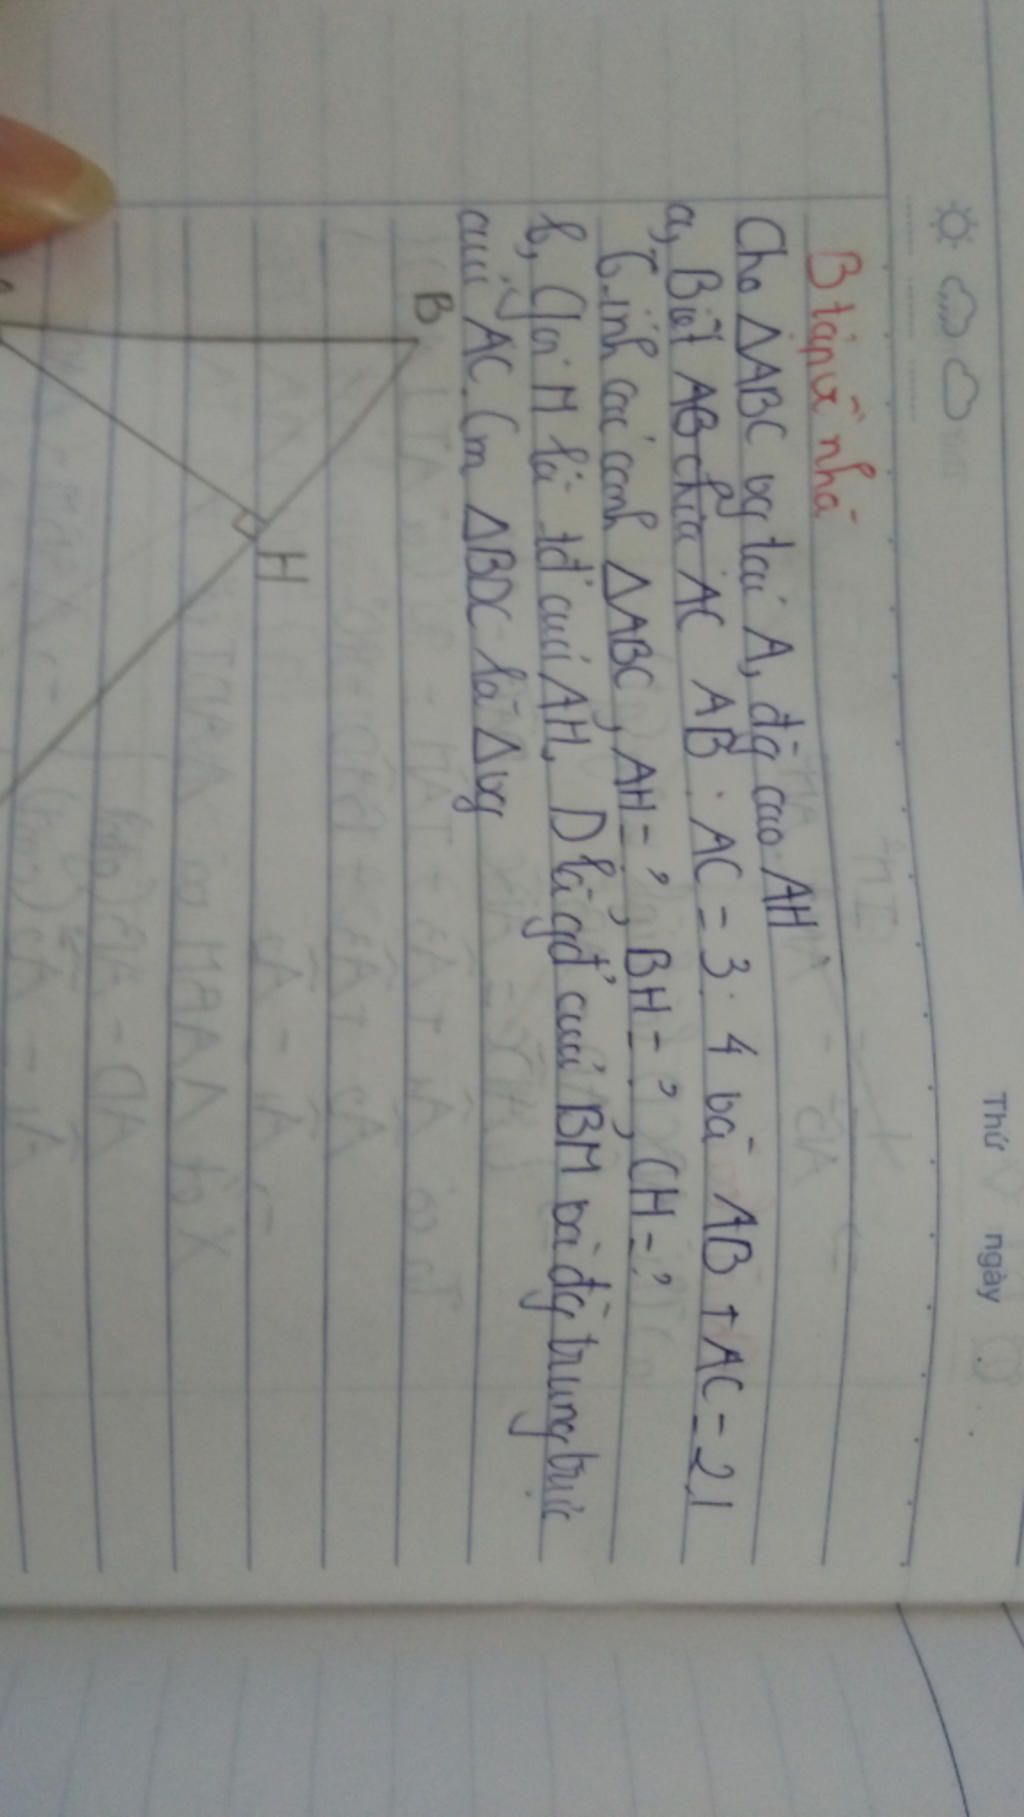 Thứ ngày
B tập về nhà
Cho ΔABC vg tại A, đg cao AH
a, Biết AB chia AC AB : AC = 3 : 4 và AB + AC = 21
Tính các cạnh ΔABC, AH = ?, BH = ?, CH = ?
b, Gọi M là tđ' của AH, D là gđ' của BM và đg trung trực
của AC. Cm ΔBDC là Δ vg
B
H